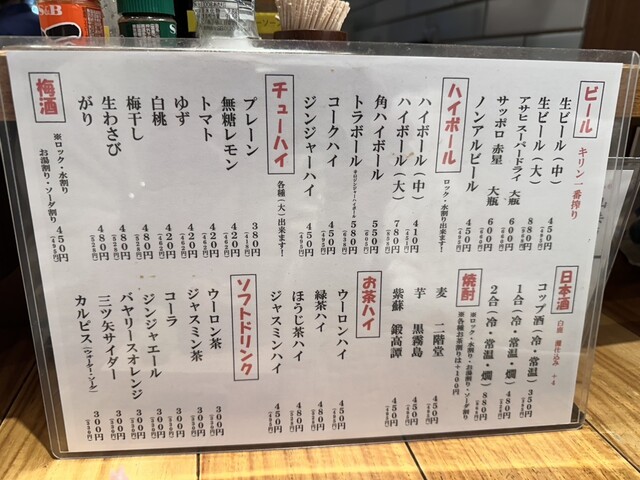 S&B
ビール
キリン一番搾り
生ビール(中) 450円 (495円)
生ビール(大) 880円
アサヒスーパードライ 大瓶 600円
サッポロ 赤星 大瓶 600円
ノンアルビール 450円 (495円)
ハイボール
ロック・水割り出来ます!
ハイボール(中) 410円
ハイボール(大) 780円
角ハイボール 550円
トラボール 580円
コークハイ 450円 (495円)
ジンジャーハイ 450円 (495円)
チューハイ
各種(大)出来ます!
プレーン 380円 (418円)
無糖レモン 420円 (462円)
トマト 420円 (462円)
ゆず 420円 (462円)
白桃 480円 (528円)
梅干し 480円 (528円)
生わさび 480円 (528円)
がり 480円 (528円)
梅酒
※ロック・水割り
お湯割り・ソーダ割り 450円 (495円)
日本酒
コップ酒(冷・常温) 350円
1合(冷・常温・燗) 480円
2合(冷・常温・燗) 880円
焼酎
※ロック・水割り・お湯割り・ソーダ割り
※各種お茶割りは+100円
麦 二階堂 450円
芋 黒霧島 450円
紫蘇 鍛高譚 450円
お茶ハイ
ウーロンハイ 450円
緑茶ハイ 480円
ほうじ茶ハイ 480円
ジャスミンハイ 450円
ソフトドリンク
ウーロン茶 300円
ジャスミン茶 300円
コーラ 300円
ジンジャエール 300円
バヤリースオレンジ 300円
三ツ矢サイダー 300円
カルピス(ウォーター・ソーダ) 300円